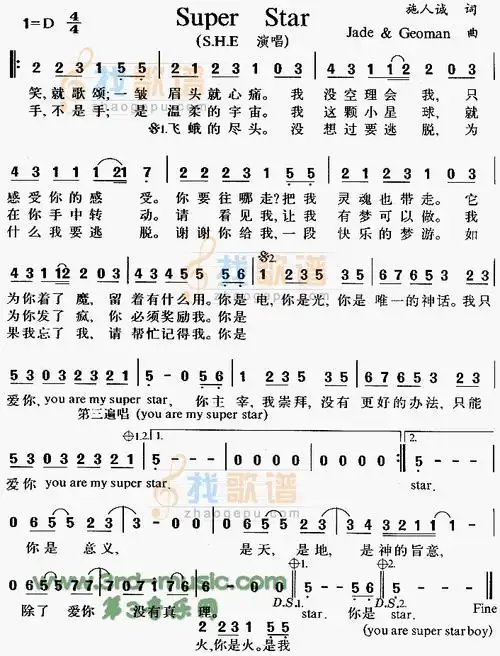 Super Star
1=D 4/4
(S.H.E 演唱)
施人诚 词
Jade & Geoman 曲
2 2 3 1 5 5 2 2 3 2 3 1 0 3 4 3 1 1 2 2 0 3
笑,就歌颂;一皱 眉头就心痛。我 没空理会 我,只
手,不是手;是 温柔的宇宙。我 这颗小星 球,就
𝄋1.飞蛾的尽头。没 想过要 逃脱,为
找歌谱
zhaogepu.com
4 3 1 1 1 2 1 7 2 2 2 3 2 3 1 5 5 2 2 3 2 3 1 0 3
感受你的感 受。你要往哪走?把我 灵魂也带走。它
在你手中转 动。请 看见我,让我 有梦可以做。我
什么我要逃 脱。谢谢你给我,一段 快乐的梦游。如
𝄋2.
4 3 1 1 2 2 0 3 4 3 4 5 5 5 6 1 2 3 5 3 5 6 7 6 5 3 2 3
为你着了 魔,留着有什么用。你是电,你是光,你是 唯一的神话。我只
为你发了 疯,你 必须奖励我。你是
果我忘了 我,请帮忙记得我。你是
找歌谱
zhaogepu.com
5 3 0 3 2 3 2 1 5 - 0 5 6 1 2 3 5 3 5 6 7 6 5 3 2 3
爱你, you are my super star, 你主 宰,我崇拜,没有 更好的办法,只能
第三遍唱 (you are my super star)
1.2. 1. 2.
5 3 0 3 2 3 2 1 5 - - - 0 0 0 0 0 0 0 0 5 - - -
爱你 you are my super star, star.
找歌谱
zhaogepu.com
0 6 5 5 2 3 3 - 0 0 0 6 5 5 2 3 3 4 3 2 1 1 1 -
你是 意义, 是天,是地, 是神的旨意,
www.3rd-music.com
1. 2.
0 6 5 5 7 7 7 0 7 1 7 6 6 - 0 0 5 - - 5 6 5 - - -
除了 爱你 没有真 理。 star. 你是 star.
第3音乐网
D.S.1. D.S.2. Fine
2 2 3 1 5 5
火,你是火。是我
(you are super star boy)